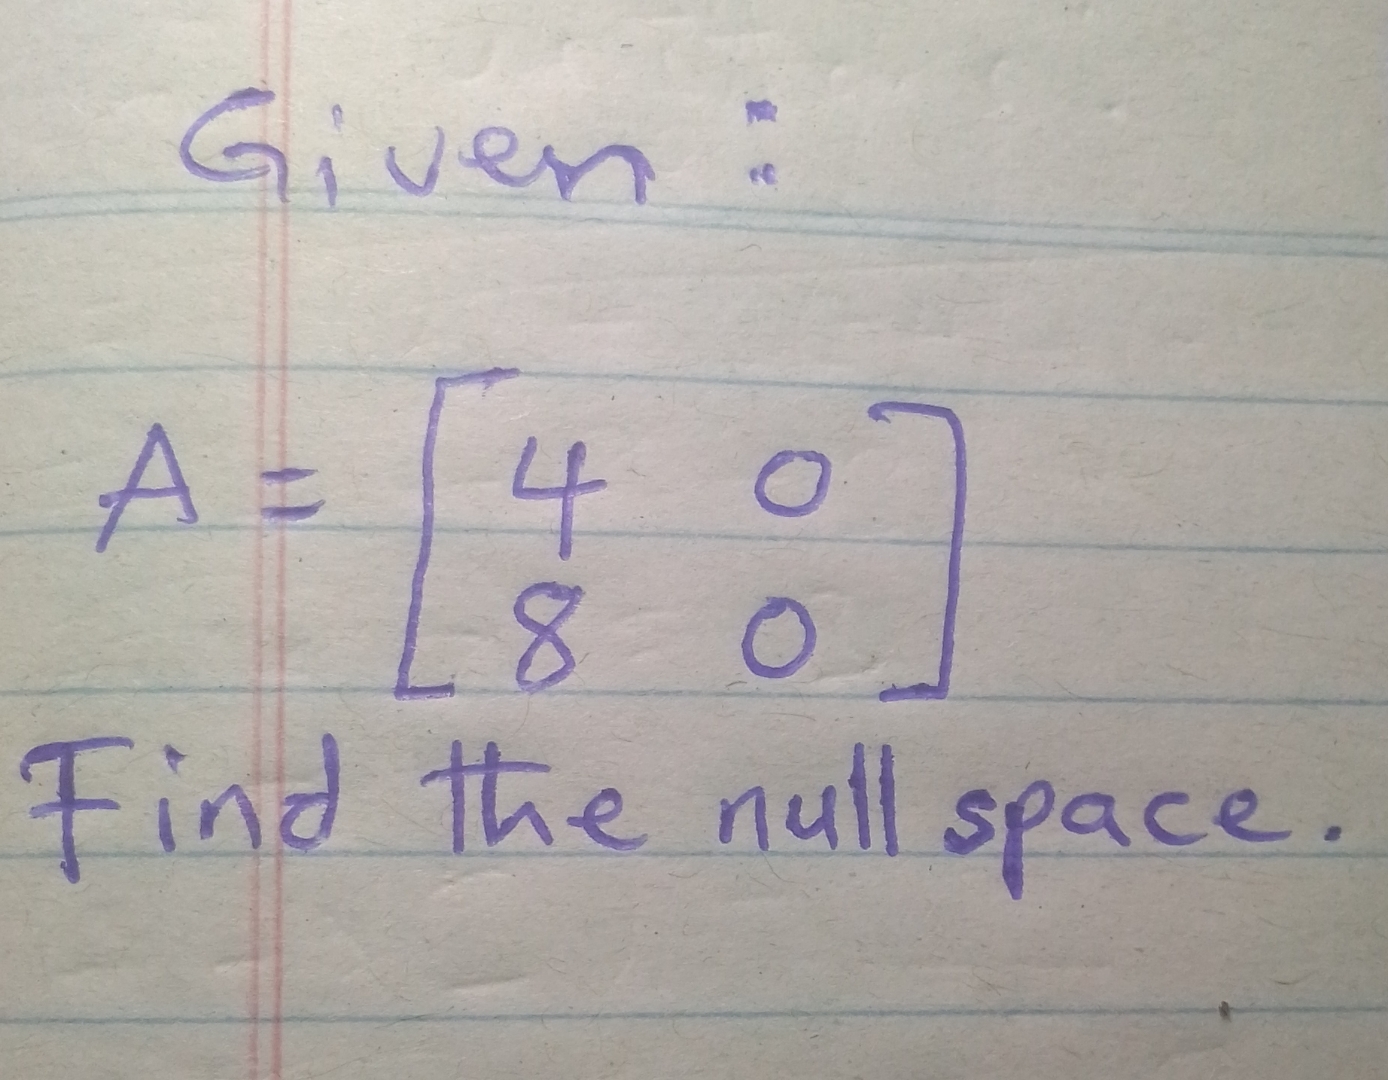 Given :
A = [ 4 0
8 0 ]
Find the null space.